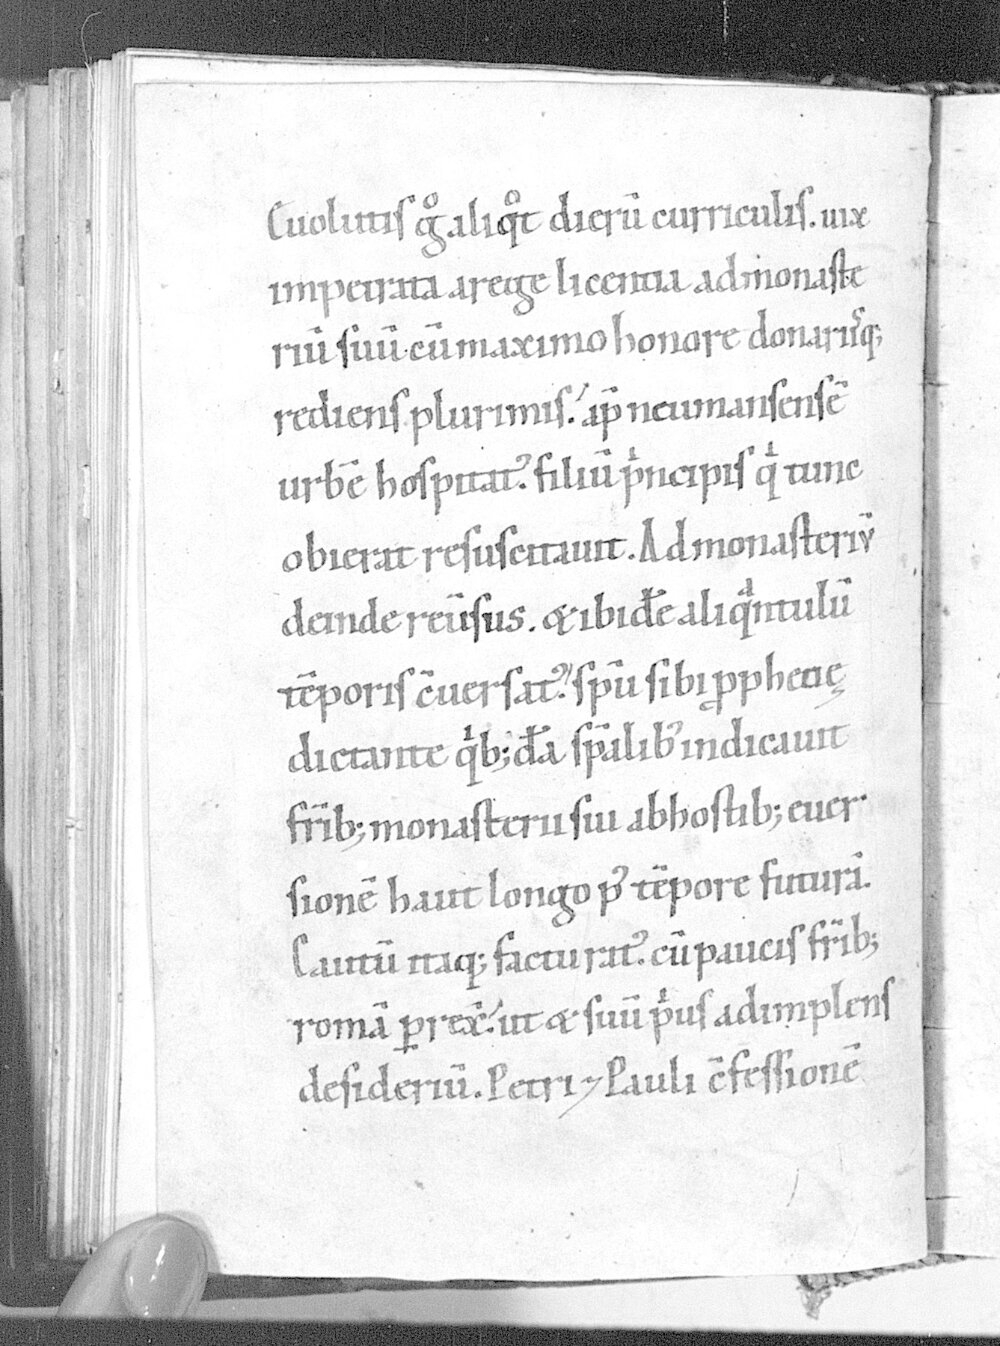 Euolutis gͦ aliqͦt dierū curriculis. uix
impetrata a rege licentia ad monaste
riū suū. cū maximo honore donariisq;
rediens plurimis. ap̄ neumansensē
urbē hospitatꝰ. filiū pͥncipis qͥ tunc
obierat resuscitauit. Ad monasteriū
deinde reūsus. & ibidē aliqͣntulū
tēporis c̄uersatꝰ. sp̄u sibi ꝓphetię
dictante qͥb; dā sp̄alibꝰ indicauit
fr̄ib; monasterii sui ab hostib; euer
sionē haut longo pꝰ tēpore futurā.
Cautū itaq; factu ratꝰ. cū paucis fr̄ib;
romā ꝑrex̄. ut & suū pͥus adimplens
desideriū. Petri ⁊ Pauli c̄fessionē